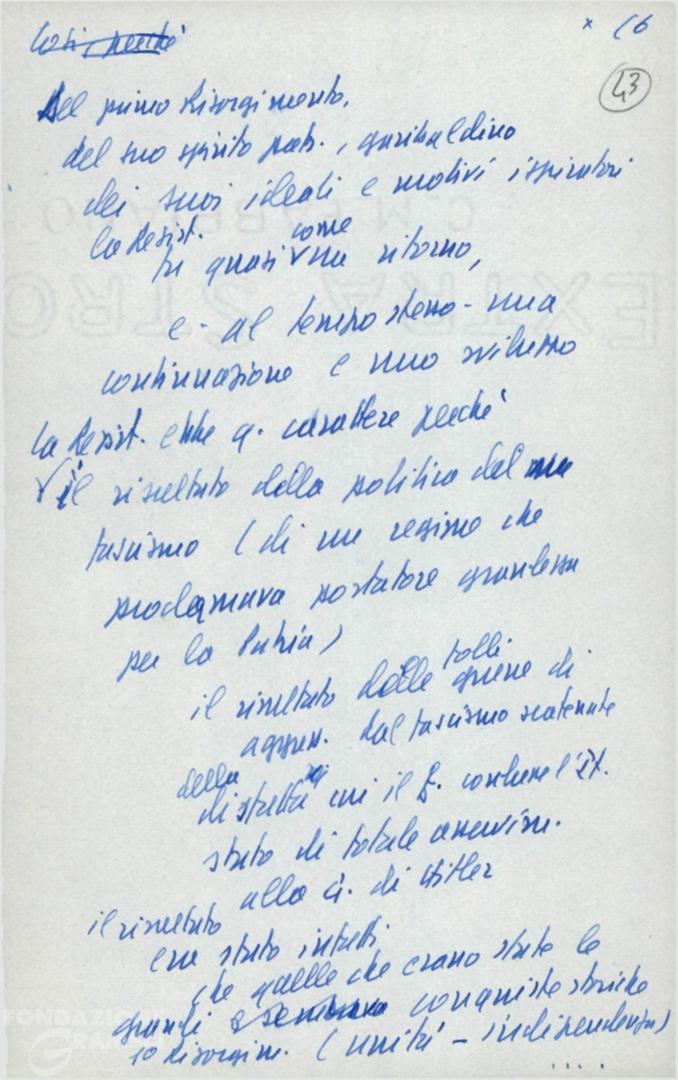 Così, perché
x 16
43
Del primo Risorgimento,
del suo spirito patr., garibaldino
dei suoi ideali e motivi ispiratori
la Resist. come
fu quasi un ritorno,
e - al tempo stesso - una
continuazione e uno sviluppo
La Resist. ebbe q. carattere perché
il risultato della politica del
fascismo (di un regime che
proclamava portatore grandezza
per la Patria)
il risultato delle folli
guerre di
aggress. dal fascismo scatenate
della
disfatta cui il f. condusse l'It.
stato di totale asservim.
alla G. di Hitler
il risultato
era stato infatti
che quelle che erano state le
grandi conquiste storiche
1o Risorgim. (unità - indipendenza)
FONDAZIONE
GRAMSCI